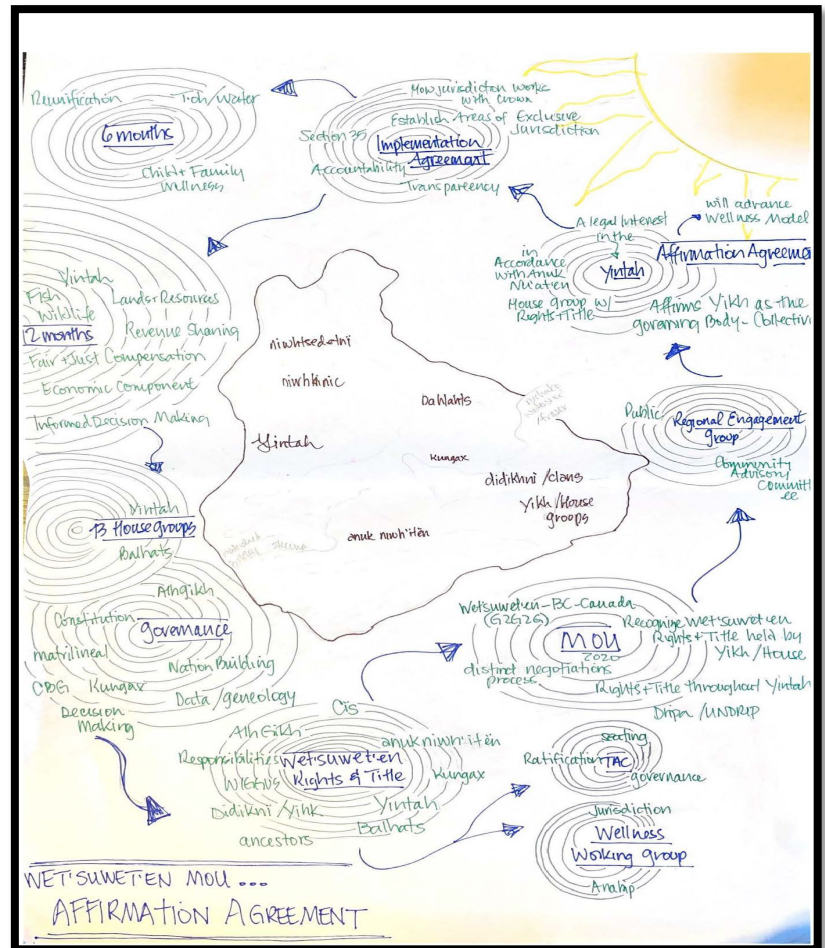 Reunification
Toh/Water
6 months
Child + Family
Wellness
How jurisdiction works
with Crown
Establish Areas of Exclusive
Jurisdiction
Section 35
Implementation
Agreement
Accountability
Transpareency
will advance
Wellness Model
A legal Interest
in the
Yintah
in
Accordance
with Anuk
Nu'at'en
House group w/
Rights + Title
Affirmation Agreeme
Affirms Yikh as the
governing Body - Collectiv
Yintah
Fish
Wildlife
Lands + Resources
12 months
Revenue Sharing
Fair + Just Compensation
Economic Component
Informed Decision Making
niwhkinic
Dawahts
Yintah
kungax
didikhni /clans
Yikh /House
groups
anuk niwh'itën
Public
Regional Engagement
group
Community
Advisory
Committ
ee
Yintah
13 House groups
Balhats
Athgikh
Constitution
governance
matrilineal
Nation Building
CBG
Kungax
Data /geneology
Decision
Making
Wet'suwet'en-BC-Canada
(G2G2G)
MOU
2020
Recognize Wet'suwet'en
Rights + Title held by
Yikh/House
distinct negotiations
process
Rights + Title throughout Yintah
Dripa /UNDRIP
Cis
Alh Gikh
anuk niwh'itën
Responsibilities
Wet'suwet'en
Rights & Title
Wiggus
Kungax
Didikni /Yihk
Yintah
Balhats
ancestors
seating
Ratification
TAC
governance
Jurisdiction
Wellness
Working group
Anabip
WET'SUWET'EN MOU ...
AFFIRMATION AGREEMENT